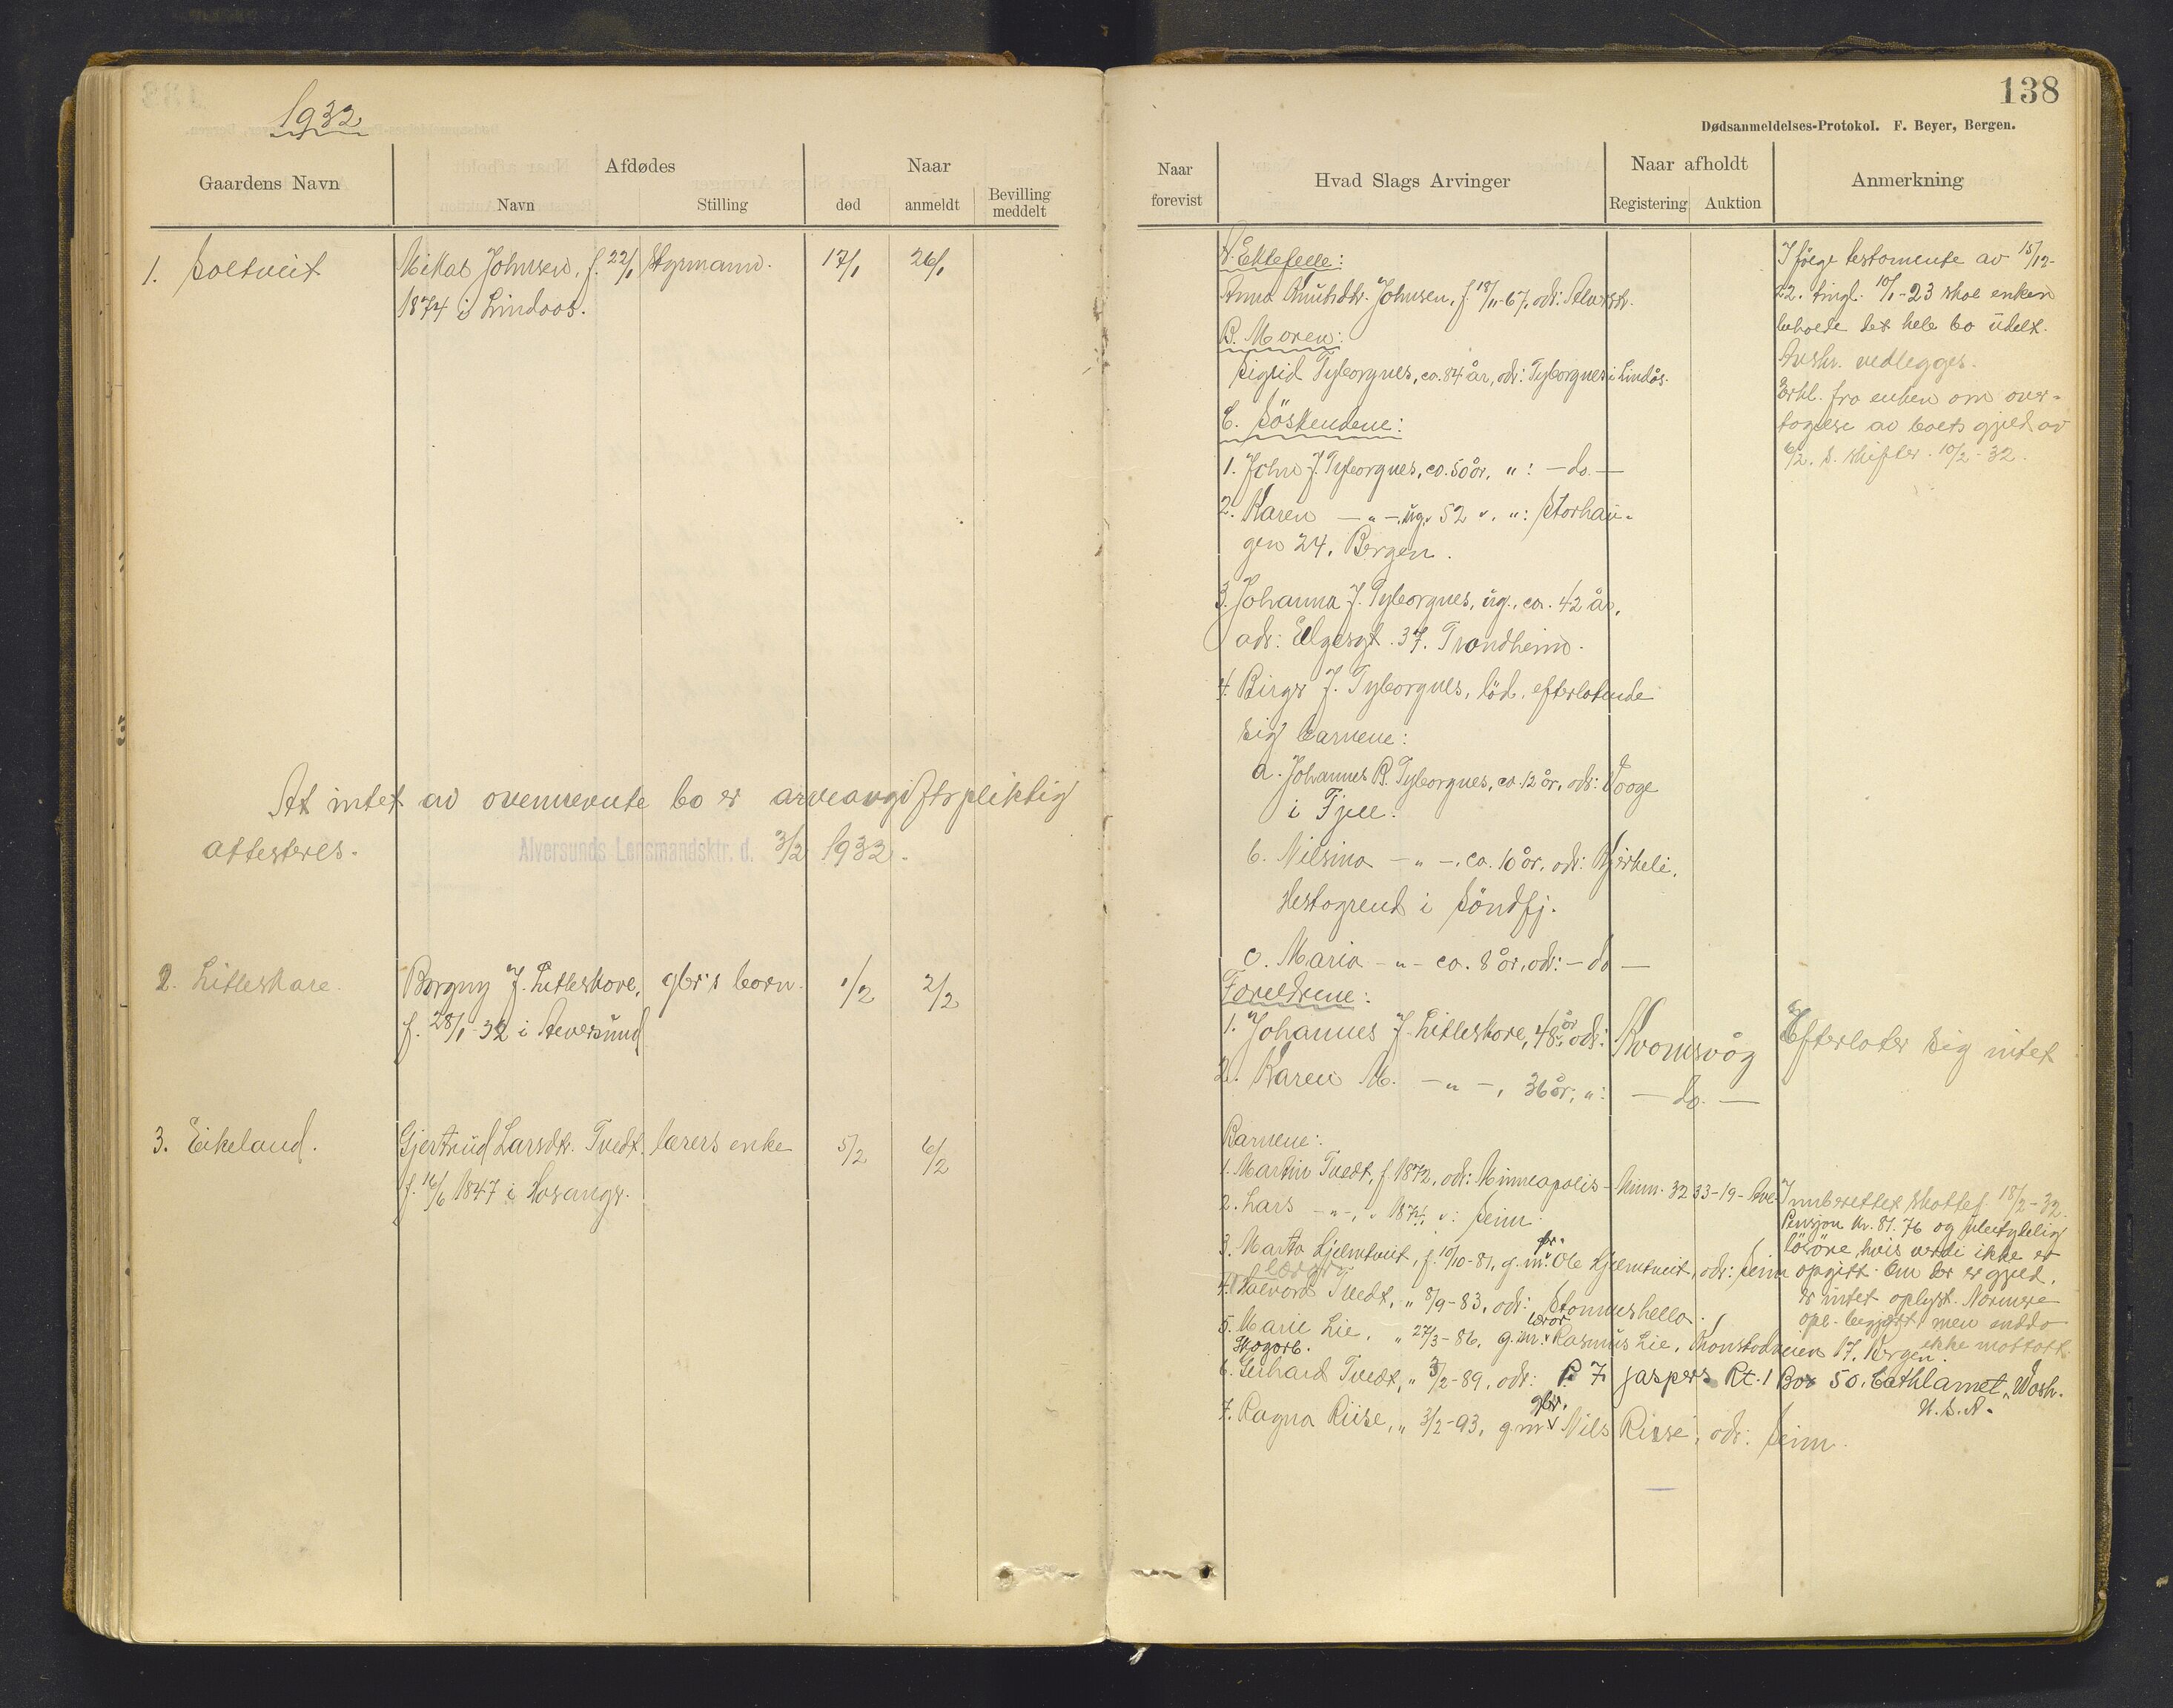 138
Dødsanmeldelses-Protokol. F. Beyer, Bergen.
1932
Gaardens Navn
Afdødes
Navn
Stilling
Naar
død
anmeldt
Bevilling
meddelt
Naar
forevist
Hvad Slags Arvinger
Naar afholdt
Registering
Auktion
Anmerkning
1. Soltveit
Mikal Johnsen, f. 22/1
1874 i Lindaas.
Styrmann.
17/1
26/1
A. Ektefelle:
Anna Knutsdtr. Johnsen, f. 18/11-67, adr: Alverstr.
B. Moren:
Sigrid Tyborgnes, ca. 84 år, adr: Tyborgnes i Lindås.
C. Söskendene:
1. John J. Tyborgnes, ca. 50 år, " : - do. -
2. Karen - " -, ug. 52 ", ": Storhau-
gen 24, Bergen.
3. Johanna J. Tyborgnes, ug., ca. 42 år,
adr: Elgesgt. 37. Trondheim.
4. Birger J. Tyborgnes, död, efterlatende
sig barnene:
a. Johannes B. Tyborgnes, ca. 12 år, adr:
i Fjell.
b. Nilsina - " -, ca. 10 år, adr: Kjerheli,
i Söndfj.
c. Maria - " - ca. 8 år, adr: - do -
Ifölge testamente av 15/12-
22. tingl. 10/1-23 skal enken
beholde det hele bo udelt.
Avskr. vedlegges.
Erkl. fra enken om over-
tagelse av boets gjeld av
6/2. S. skifter. 10/2-32.
At intet av ovennevnte bo er arveavgiftspliktig
attesteres.
Alversunds Lensmandsktr. d. 3/2 1932.
2. Litleskare.
Borgny J. Litleskare,
f. 28/1-32 i Alversund
gbr's barn.
1/2
2/2
Foreldrene:
1. Johannes J. Litleskare, 48 år, adr: Kvamsvåg
2. Karen M. - " -, 36 år, ": - do. -
Efterlater sig intet
3. Eikeland.
Gjertrud Larsdtr. Tvedt,
f. 16/6 1847 i Hosanger.
lærers enke
5/2
6/2
Barnene:
1. Martin Tvedt, f. 1872, adr: Minneapolis - Minn. 3233-19- Ave.
2. Lars - " -, " 1874, ": Seim.
3. Marta Hjelmtveit, f. 10/10-81, g.m. gbr. Ole Hjelmtveit, adr: Seim
4. lærer Halvard Tvedt, " 8/9-83, adr: Stamneshella.
5. Marie Lie, " 27/3-86, g.m. lærer Rasmus Lie, Kronstadveien 17, Bergen.
6. Skogarb. Gerhard Tvedt, " 3/2-89, adr: P. 7 jaspers Rt. 1 Box 50. Cathlamet, Wash.
U.S.A.
7. Ragna Riise, " 3/2-93, g.m. gbr. Nils Riise, adr: Seim.
Innberettet skattef. 18/2-32.
Pensjon kr. 81.76 og ubetydelig
lösöre, hvis verdi ikke er
opgitt. Om der er gjeld,
er intet oplyst. Nærmere
opl. begjært men enddo
ikke mottatt.